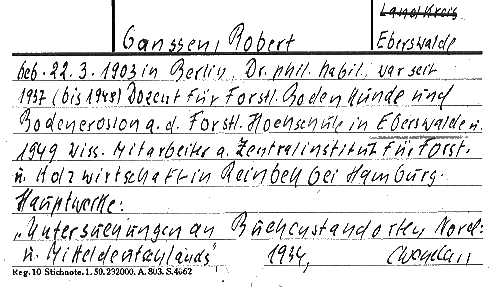 Landkreis
Ganssen, Robert
Eberswalde
geb. 22.3.1903 in Berlin, Dr. phil. habil., war seit
1937 (bis 1948) Dozent für Forstl. Bodenkunde und
Bodenerosion a.d. Forstl. Hochschule in Eberswalde u.
1949 Wiss. Mitarbeiter a. Zentralinstitut für Forst-
u. Holzwirtschaft in Reinbek bei Hamburg.
Hauptwerke:
„Untersuchungen an Buchenstandorten Nord-
u. Mitteldeutschlands" 1934,
Reg. 10 Stichnote. 1. 50. 232000. A. 803. S. 4662